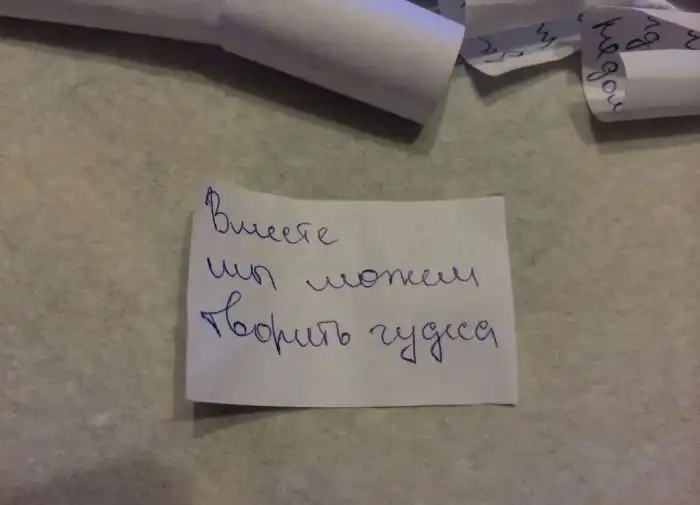 рядом
Вместе
мы можем
творить чудеса